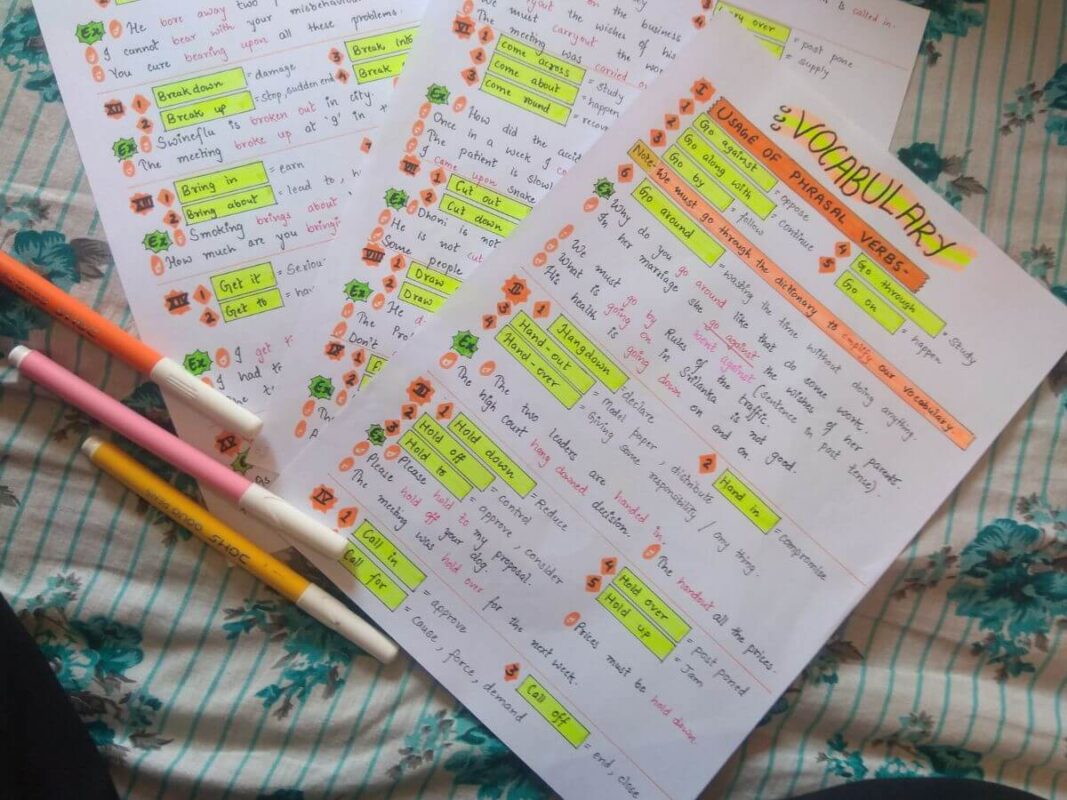 VOCABULARY
I USAGE OF PHRASAL VERBS-
1 Go against = oppose
2 Go along with = continue
3 Go by = follow
4 Go through = Study
5 Go on = happen
Note:- We must go through the dictionary to amplify our vocabulary.
6 Go around = wasting the time without doing anything.
Ex Why do you go around like that do some work.
In her marriage she go against the wishes of her parents.
went against (sentence in post tence).
We must go by Rules of the traffic.
What is going on in Srilanka is not good.
His health is going down on and on.
II 1 Hangdown = declare
2 Hand in = compromise
3 Hand-out = Model paper, distribute
4 Hand over = Giving some responsibility / any thing.
Ex The two leaders are handed in.
The handout all the prices.
The high court hang downed decision.
III 1 Hold down = Reduce
2 Hold off = control
3 Hold to = approve, consider
4 Hold over = post poned
5 Hold up = Jam
Ex Please hold to my proposal.
Please hold off your dog.
Prices must be hold down.
The meeting was hold over for the next week.
IV 1 Call in = approve
Call for = cause, force, demand
3 Call off = end, close
Ex He bore away two
I cannot bear with your misbehaviou
You cure bearing upon all these problems.
XII 1 Break down = damage
2 Break up = stop, sudden end
3 Break into
4 Break
Ex Swineflu is broken out in city.
The meeting broke up at '9' in
XIII 1 Bring in = earn
2 Bring about = lead to,
Ex Smoking brings about
How much are you bringi
XIV 1 Get it = Seriou
2 Get to = ha
Ex I get
I had t
on the business
the wishes of his
We must carryout the wor
The meeting was carried
VI 1 come across = study
2 come about = happen
3 come round = recov
Ex How did the acci
Once in a week I
The patient is slowl
I came upon snake
VII 1 Cut out
2 Cut down
Ex Dhoni is not
He is not cut
Some people
VIII 1 Draw
2 Draw
Ex He d
The Pro
Don't
IX
Ex Th
As
is called in.
ry over = post pone
= supply